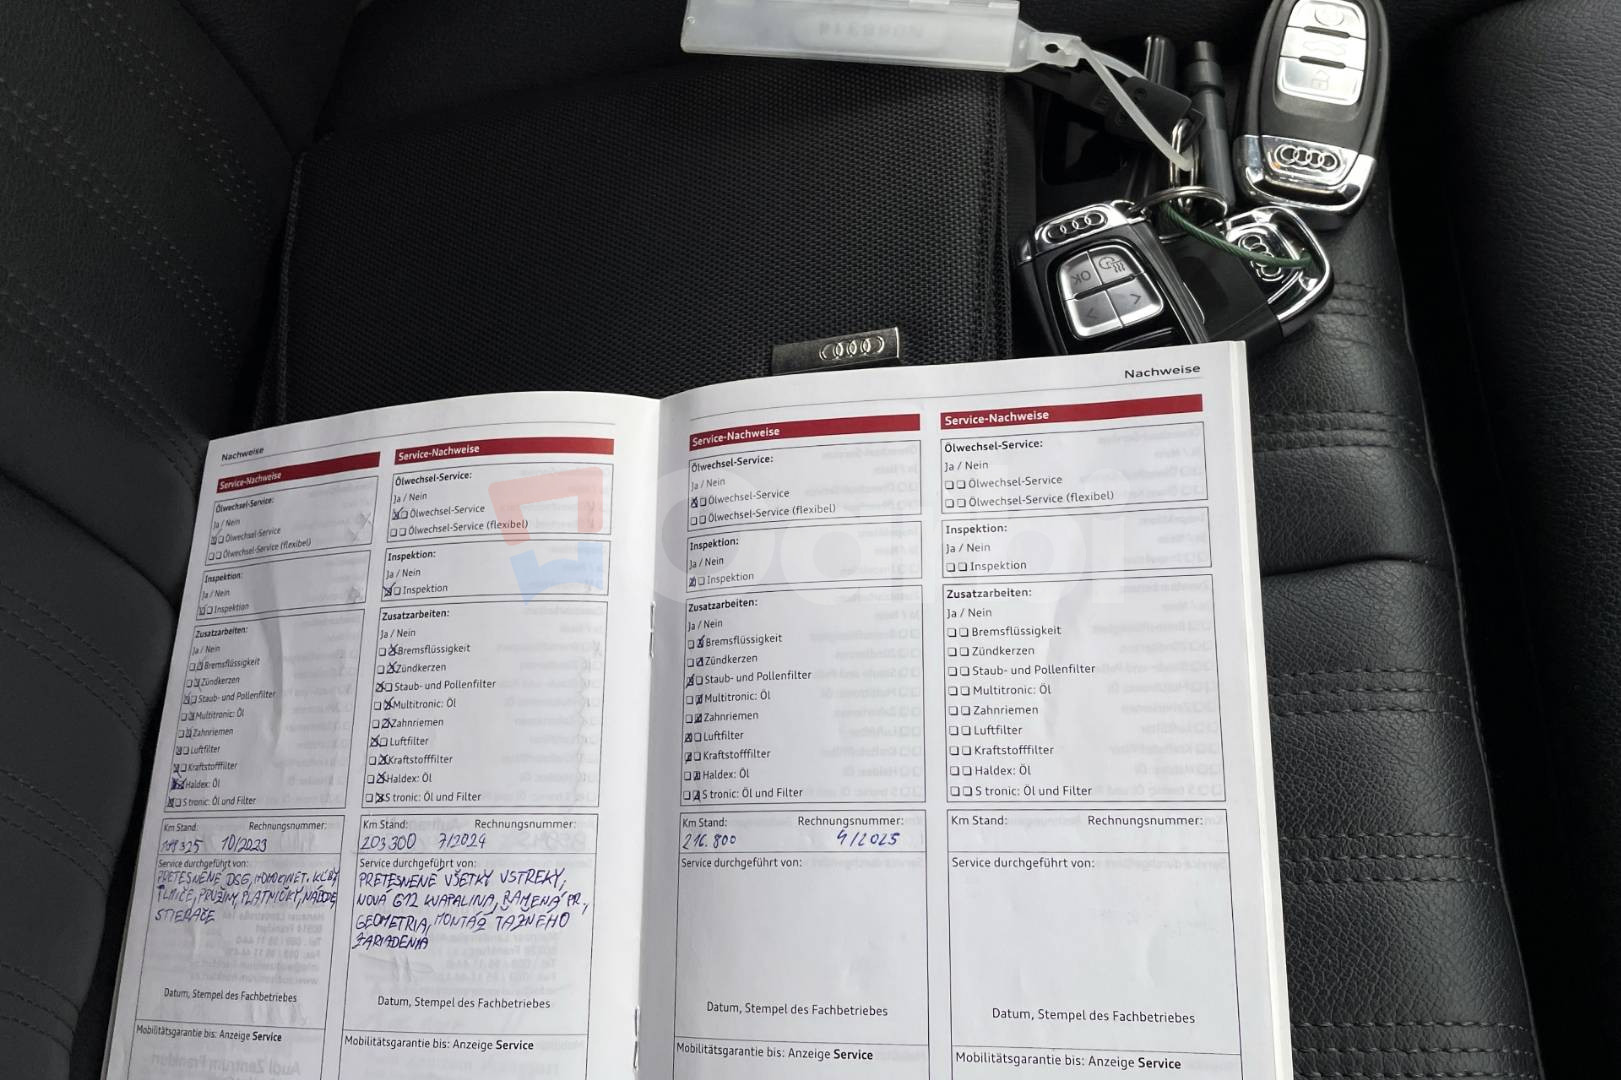 Nachweise
Nachweise
Service-Nachweise
Ölwechsel-Service:
Ja / Nein
Ölwechsel-Service
Ölwechsel-Service (flexibel)
Inspektion:
Ja / Nein
Inspektion
Zusatzarbeiten:
Ja / Nein
Bremsflüssigkeit
Zündkerzen
Staub- und Pollenfilter
Multitronic: Öl
Zahnriemen
Luftfilter
Kraftstofffilter
Haldex: Öl
S tronic: Öl und Filter
Km Stand: Rechnungsnummer:
325 10/2023
Service durchgeführt von:
PRETESNENÉ DSG,
TLMIČE, PRUŽINY, PLATNIČKY,
STIERAČE
Datum, Stempel des Fachbetriebes
Mobilitätsgarantie bis: Anzeige Service
Service-Nachweise
Ölwechsel-Service:
Ja / Nein
Ölwechsel-Service
Ölwechsel-Service (flexibel)
Inspektion:
Ja / Nein
Inspektion
Zusatzarbeiten:
Ja / Nein
Bremsflüssigkeit
Zündkerzen
Staub- und Pollenfilter
Multitronic: Öl
Zahnriemen
Luftfilter
Kraftstofffilter
Haldex: Öl
S tronic: Öl und Filter
Km Stand: Rechnungsnummer:
203 300 7/2024
Service durchgeführt von:
PRETESNENÉ VŠETKY VSTREKY,
NOVÁ G12 KVAPALINA, RAMENÁ PR.,
GEOMETRIA, MONTÁŽ ŤAŽNÉHO
ZARIADENIA
Datum, Stempel des Fachbetriebes
Mobilitätsgarantie bis: Anzeige Service
Service-Nachweise
Ölwechsel-Service:
Ja / Nein
Ölwechsel-Service
Ölwechsel-Service (flexibel)
Inspektion:
Ja / Nein
Inspektion
Zusatzarbeiten:
Ja / Nein
Bremsflüssigkeit
Zündkerzen
Staub- und Pollenfilter
Multitronic: Öl
Zahnriemen
Luftfilter
Kraftstofffilter
Haldex: Öl
S tronic: Öl und Filter
Km Stand: Rechnungsnummer:
216.800 4/2025
Service durchgeführt von:
Datum, Stempel des Fachbetriebes
Mobilitätsgarantie bis: Anzeige Service
Service-Nachweise
Ölwechsel-Service:
Ja / Nein
Ölwechsel-Service
Ölwechsel-Service (flexibel)
Inspektion:
Ja / Nein
Inspektion
Zusatzarbeiten:
Ja / Nein
Bremsflüssigkeit
Zündkerzen
Staub- und Pollenfilter
Multitronic: Öl
Zahnriemen
Luftfilter
Kraftstofffilter
Haldex: Öl
S tronic: Öl und Filter
Km Stand: Rechnungsnummer:
Service durchgeführt von:
Datum, Stempel des Fachbetriebes
Mobilitätsgarantie bis: Anzeige Service
OK